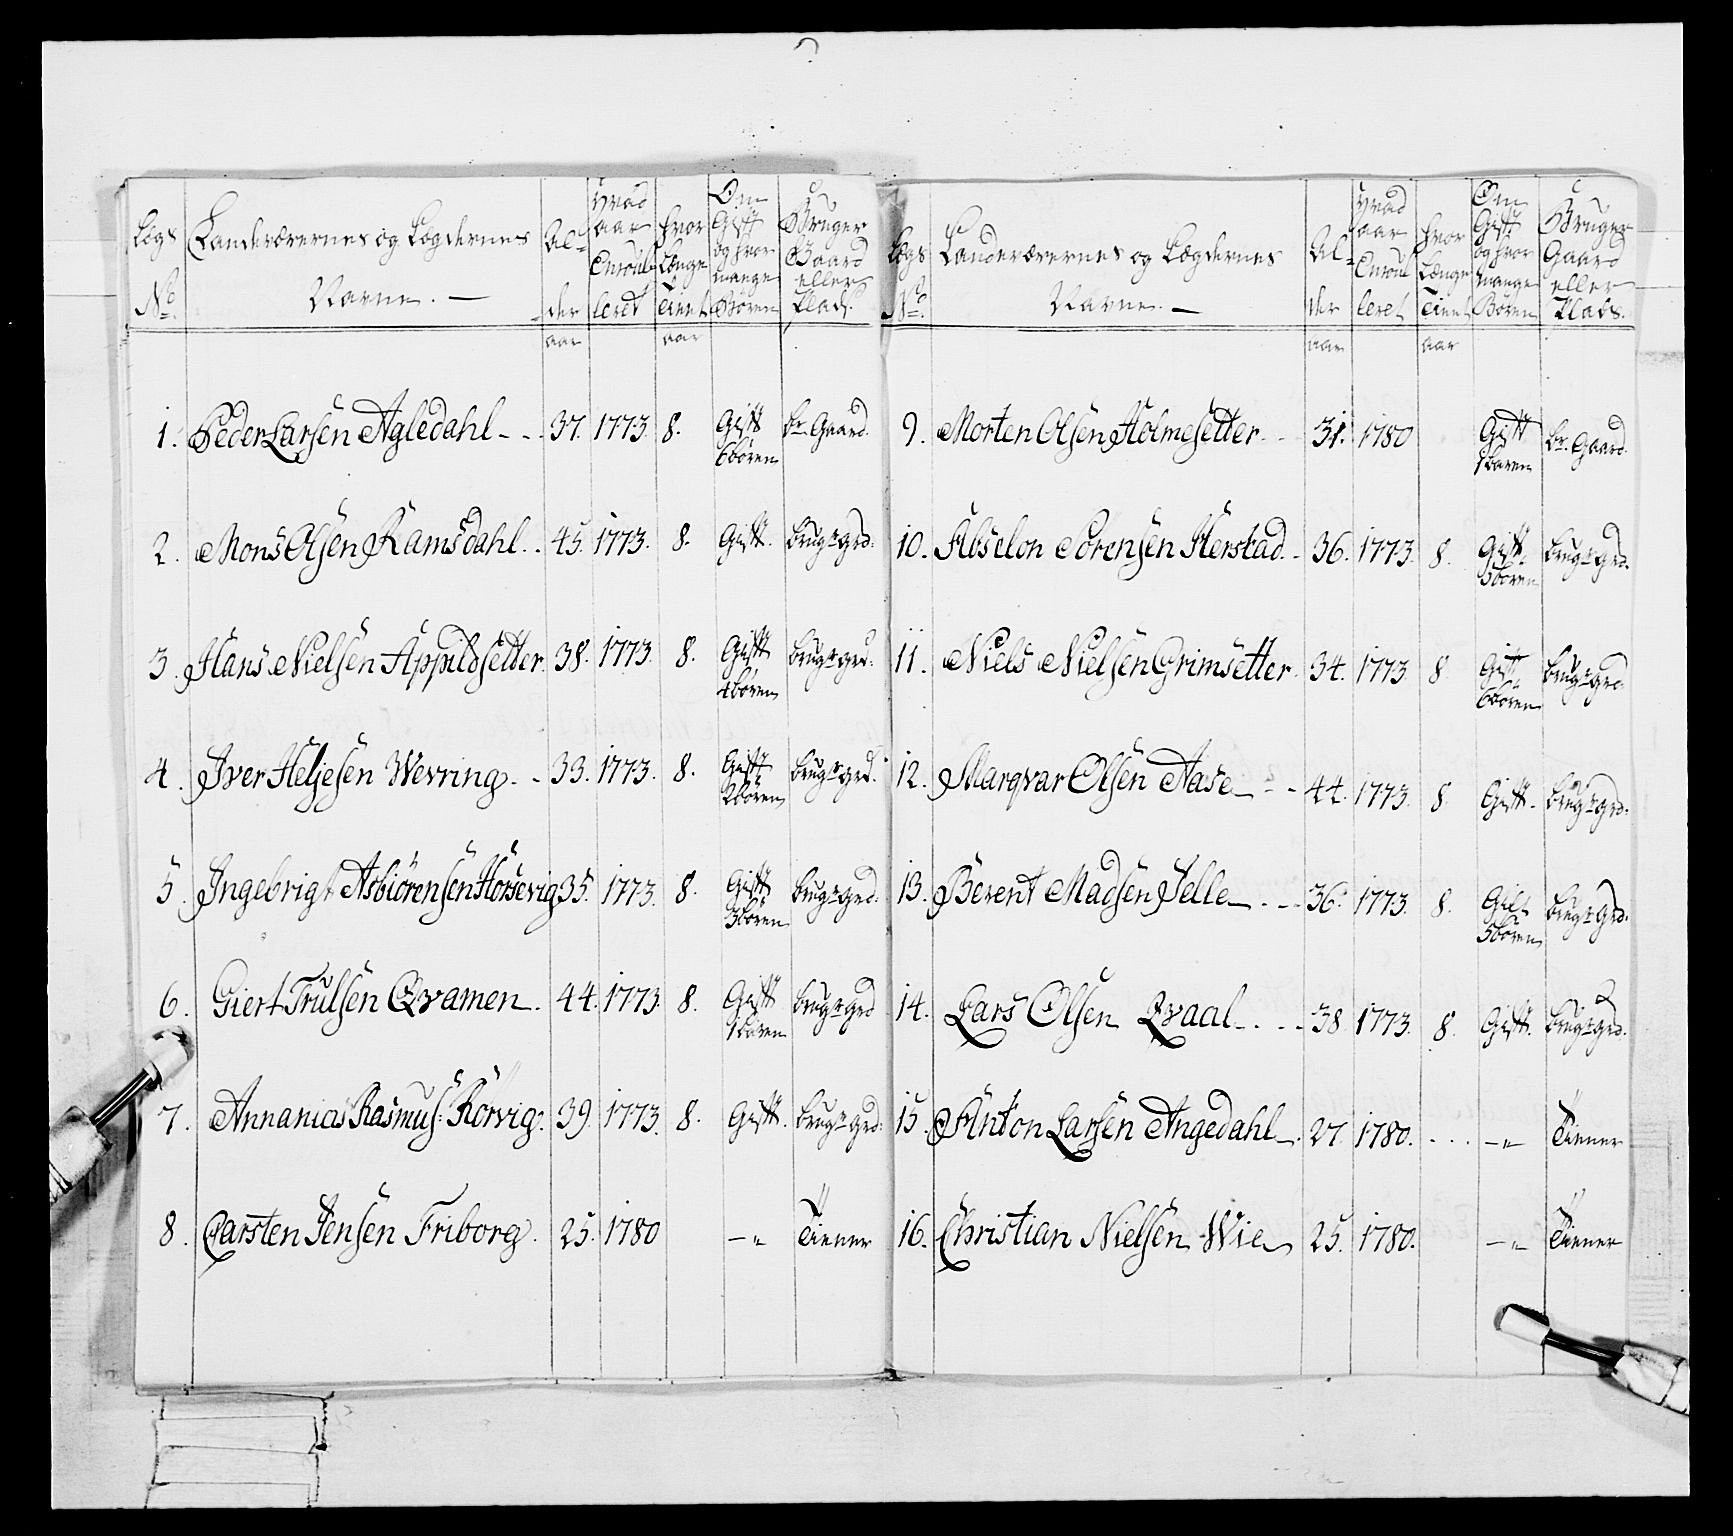 Lægs No. Landeværernes og Lægdernes Navne. Alder aar Hvad aar Enroulleret Hvor Længe Tient aar Om Gift og hvor mange Børen Bruger Gaard eller Plads.
1. Peder Larsen Agledahl 37. 1773. 8. Gift 6 børen br. Gaard.
2. Mons Olsen Ramsdahl 45. 1773. 8. Gift. brugr grd.
3. Hans Nielsen Appildsetter. 38. 1773. 8. Gift 4 børen brugr grd.
4. Iver Heljesen Wevring 33. 1773. 8. Gift 2 børen brugr grd.
5. Ingebrigt Asbiörensen Horsevig 35. 1773. 8. Gift 3 børen brugr grd.
6. Giert Trulsen Qvamen. 44. 1773. 8. Gift 1 baren brugr grd
7. Annanias Rasmus: Rörvig. 39. 1773. 8. Gift. brugr grd.
8. Carsten Jensen Friborg. 25. 1780 -„ Tiener
Lægs No. Landeværernes og Lægdernes Navne. Alder aar Hvad aar Enroulleret Hvor Længe Tient aar Om Gift og hvor mange Børen Bruger Gaard eller Plads.
9. Morten Olsen Holmesetter 31. 1780 Gift 1 baren br. Gaard.
10. Abselon Sörensen Herstad 36. 1773. 8. Gift 3 børen brugr grd.
11. Niels Nielsen Grimsetter 34. 1773. 8. Gift 6 børen brugr grd.
12. Marqvar Olsen Aase 44. 1773. 8. Gift. brugr grd.
13. Berent Madsen Jelle 36. 1773. 8. Gift 5 børen brugr grd.
14. Lars Olsen Qvaal 38. 1773. 8. Gift. brugr grd.
15. Anton Larsen Angedahl 27. 1780. -„ Tiener
16. Christian Nielsen Wie 25. 1780. -„ Tiener